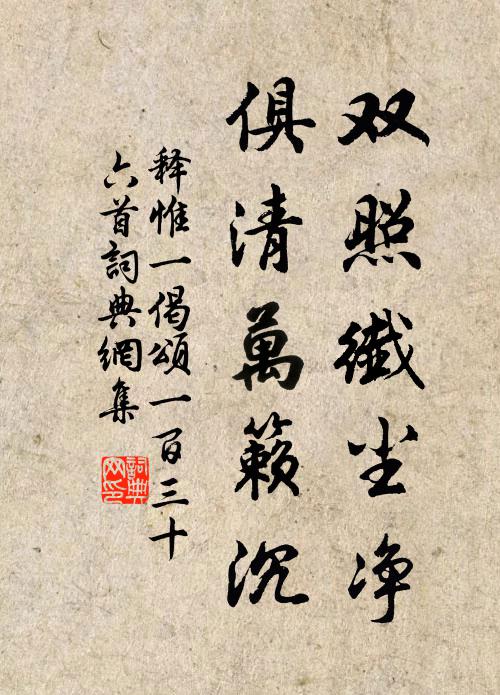 双照纖尘净
俱清萬籟沉
释惟一偈頌一百三十
六首詞典網集
詞典
网印